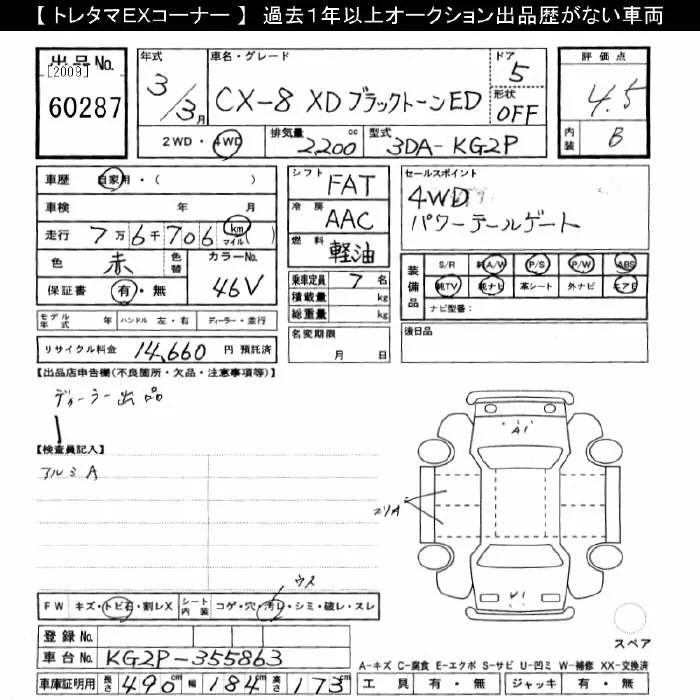 【 トレタマEXコーナー 】 過去1年以上オークション出品歴がない車両
出品No. [2009] 60287
年式 3/3月
車名・グレード CX-8 XDブラックトーンED
ドア 5
形状 OFF
評価点 4.5
内装 B
2WD・4WD 排気量 2,200 cc 型式 3DA-KG2P
車歴 自家用・( )
車検 年 月
走行 7万6千706 km マイル( )
色 赤 色替 カラーNo. 46V
保証書 有・無
シフト FAT
冷房 AAC
燃料 軽油
乗車定員 7 名
積載量 kg
総重量 kg
セールスポイント
4WD
パワーテールゲート
装備品 S/R 純A/W P/S P/W ABS
純TV 純ナビ 革シート 外ナビ エアB
ナビ型番:
モデル年式 年 ハンドル 左・右 ディーラー・並行
名変期限 月 日
後日品
リサイクル料金 14,660 円 預託済
【出品店申告欄(不良箇所・欠品・注意事項等)】
ディーラー出品
【検査員記入】
アルミA
A1
エリA
U1
ウス
FW キズ・トビ石・割レX シート内装 コゲ・穴・汚レ・シミ・破レ・スレ
スペア
登録No.
車台No. KG2P-355863
A-キズ C-腐食 E-エクボ S-サビ U-凹ミ W-補修 XX-交換済
車庫証明用 長さ 490 cm 幅 184 cm 高さ 173 cm
工具 有・無 ジャッキ 有・無